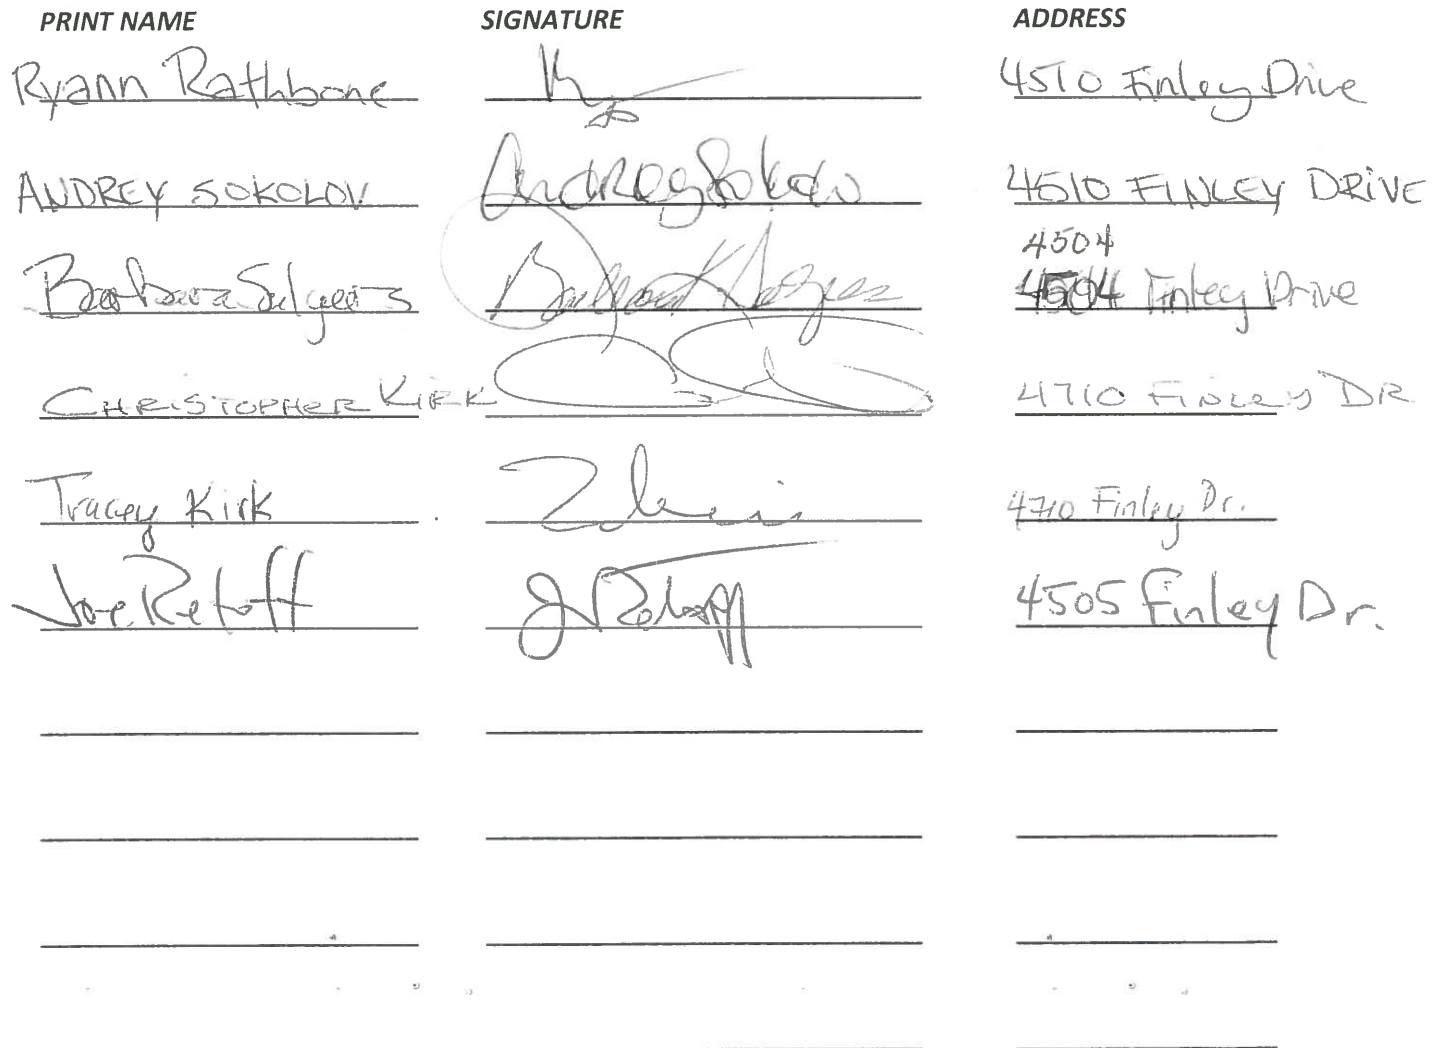 PRINT NAME SIGNATURE ADDRESS
Ryann Rathbone 4510 Finley Drive
ANDREY SOKOLOV Andrey Sokolov 4510 FINLEY DRIVE
4504
Barbara 4504 Finley Drive
CHRISTOPHER KIRK 4710 FINLEY DR
Tracey Kirk 4710 Finley Dr.
Joe 4505 Finley Dr.